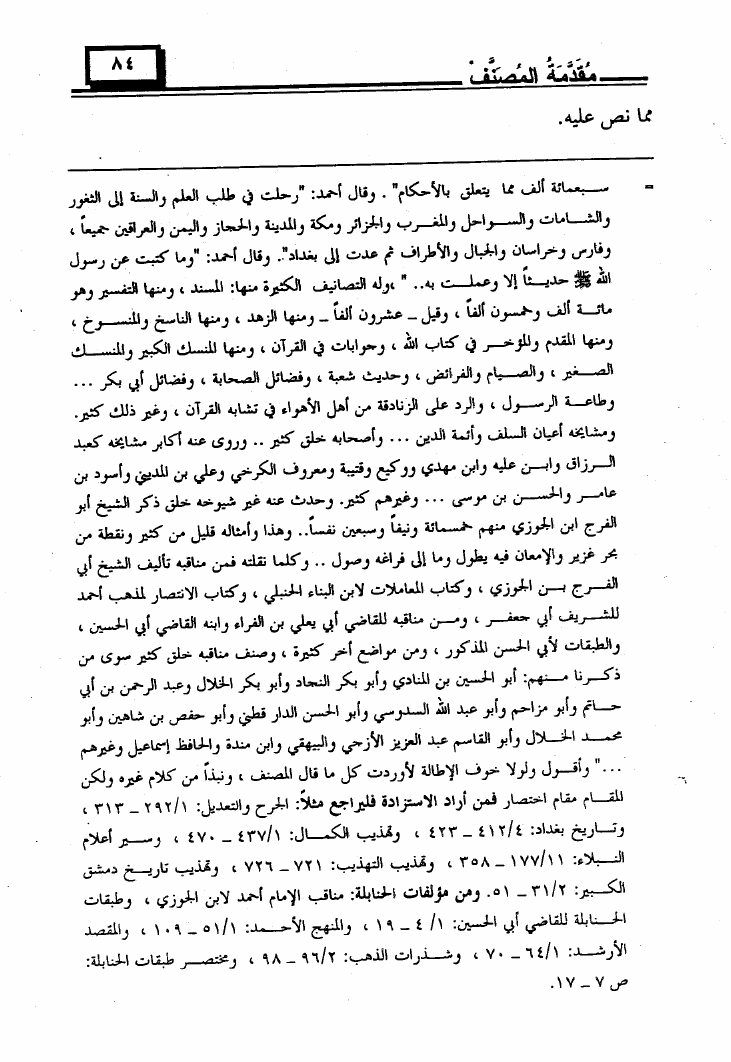 مُقَدِّمَةُ المُصَنِّفْ
٨٤
مما نص عليه.
= سبعمائة ألف مما يتعلق بالأحكام" . وقال أحمد: "رحلت في طلب العلم والسنة إلى الثغور
والشامات والسواحل والمغرب والجزائر ومكة والمدينة والحجاز واليمن والعراقين جميعاً ،
وفارس وخراسان والجبال والأطراف ثم عدت إلى بغداد". وقال أحمد: "وما كتبت عن رسول
الله ﷺ حديثاً إلا وعملت به.. " ،وله التصانيف الكثيرة منها: المسند ، ومنها التفسير وهو
مائة ألف وخمسون ألفاً ، وقيل ـ عشرون ألفاً ـ ومنها الزهد ، ومنها الناسخ والمنسوخ ،
ومنها المقدم والمؤخر في كتاب الله ، وجوابات في القرآن ، ومنها المنسك الكبير والمنسك
الصغير ، والصيام والفرائض ، وحديث شعبة ، وفضائل الصحابة ، وفضائل أبي بكر ...
وطاعة الرسول ، والرد على الزنادقة من أهل الأهواء في تشابه القرآن ، وغير ذلك كثير.
ومشايخه أعيان السلف وأئمة الدين ... وأصحابه خلق كثير .. وروى عنه أكابر مشايخه كعبد
الرزاق وابن عليه وابن مهدي ووكيع وقتيبة ومعروف الكرخي وعلي بن المديني وأسود بن
عامر والحسن بن موسى ... وغيرهم كثير. وحدث عنه غير شيوخه خلق ذكر الشيخ أبو
الفرج ابن الجوزي منهم خمسمائة ونيفاً وسبعين نفساً.. وهذا وأمثاله قليل من كثير ونقطة من
بحر غزير والإمعان فيه يطول وما إلى فراغه وصول .. وكلما نقلته فمن مناقبه تأليف الشيخ أبي
الفرج بن الجوزي ، وكتاب المعاملات لابن البناء الحنبلي ، وكتاب الانتصار لمذهب أحمد
للشريف أبي جعفر ، ومن مناقبه للقاضي أبي يعلي بن الفراء وابنه القاضي أبي الحسين ،
والطبقات لأبي الحسن المذكور ، ومن مواضع أخر كثيرة ، وصنف مناقبه خلق كثير سوى من
ذكرنا منهم: أبو الحسين بن المنادي وأبو بكر النجاد وأبو بكر الخلال وعبد الرحمن بن أبي
حاتم وأبو مزاحم وأبو عبد الله السدوسي وأبو الحسن الدار قطني وأبو حفص بن شاهين وأبو
محمد الخلال وأبو القاسم عبد العزيز الأزجي والبيهقي وابن مندة والحافظ إسماعيل وغيرهم
..." وأقول ولولا خوف الإطالة لأوردت كل ما قال المصنف ، ونبذاً من كلام غيره ولكن
للمقام مقام اختصار فمن أراد الاستزادة فليراجع مثلاً: الجرح والتعديل: ٢٩٢/١ ـ ٣١٣ ،
وتاريخ بغداد: ٤١٢/٤ ـ ٤٢٣ ، وتهذيب الكمال: ٤٣٧/١ ـ ٤٧٠ ، وسير أعلام
النبلاء: ١٧٧/١١ ـ ٣٥٨ ، وتهذيب التهذيب: ٧٢١ ـ ٧٢٦ ، وتهذيب تاريخ دمشق
الكبير: ٣١/٢ ـ ٥١. ومن مؤلفات الحنابلة: مناقب الإمام أحمد لابن الجوزي ، وطبقات
الحنابلة للقاضي أبي الحسين: ١/ ٤ ـ ١٩ ، والمنهج الأحمد: ٥١/١ ـ ١٠٩ ، والمقصد
الأرشد: ٦٤/١ ـ ٧٠ ، وشذرات الذهب: ٩٦/٢ ـ ٩٨ ، ومختصر طبقات الحنابلة:
ص ٧ ـ ١٧.